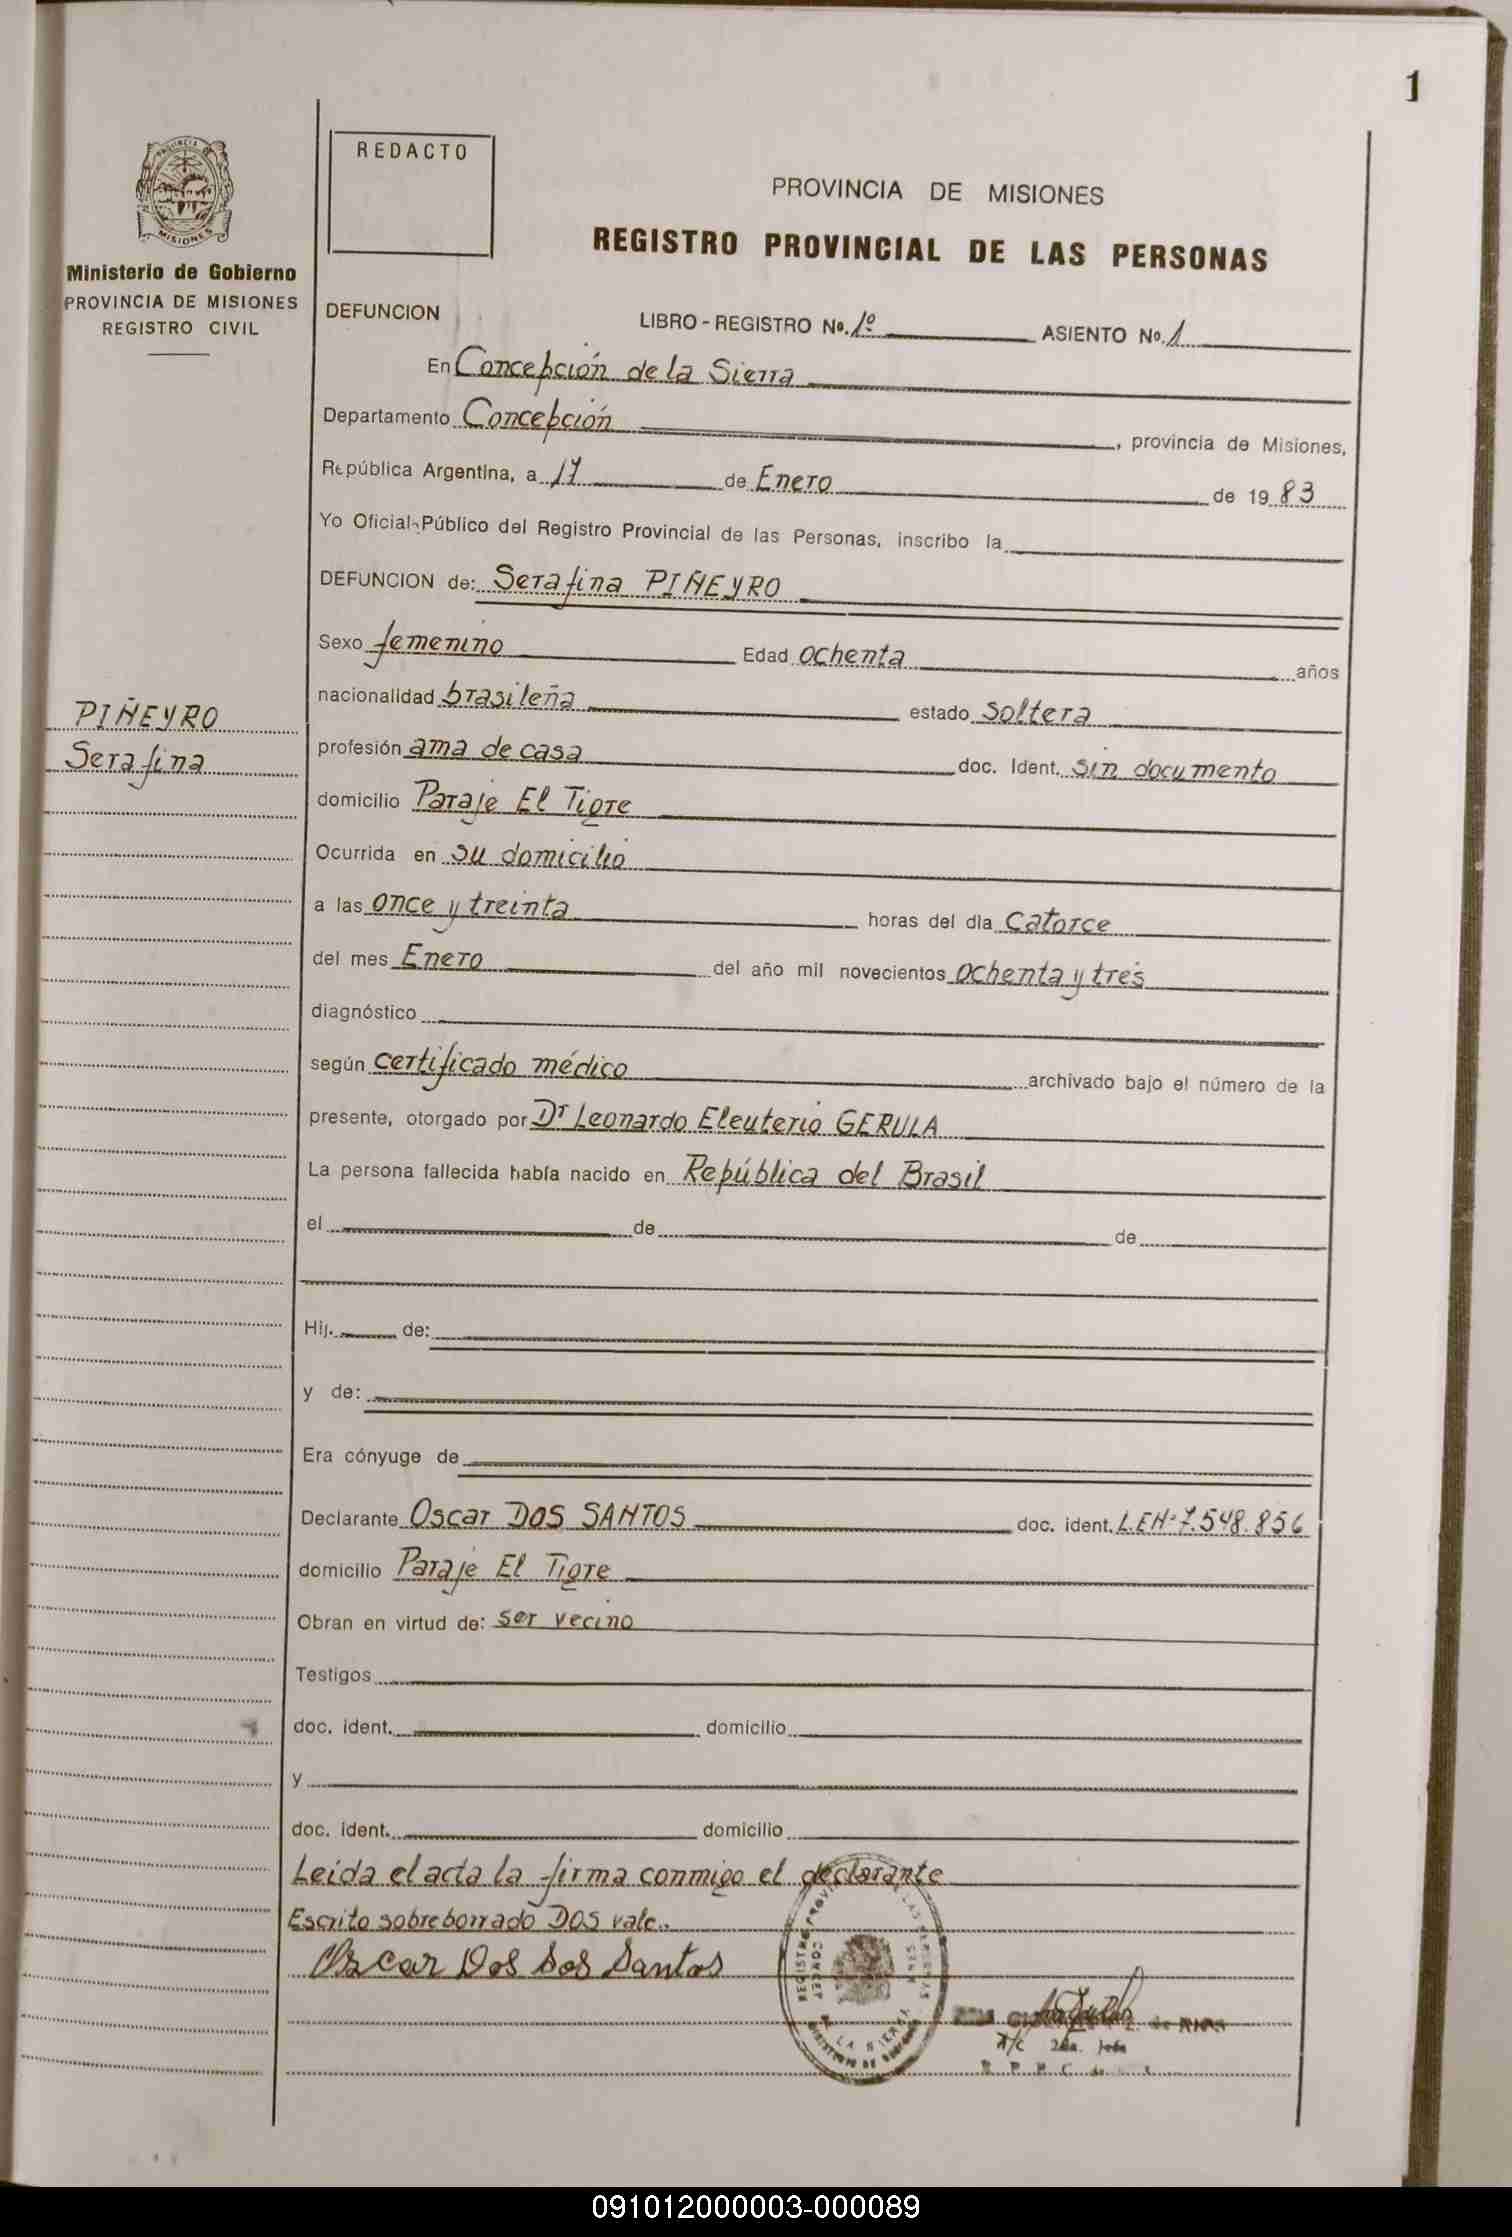 1
REDACTO
PROVINCIA DE MISIONES
REGISTRO PROVINCIAL DE LAS PERSONAS
MISIONES
Ministerio de Gobierno
PROVINCIA DE MISIONES
REGISTRO CIVIL
DEFUNCION
LIBRO - REGISTRO No. 1º ASIENTO No. 1
En Concepción de la Sierra
Departamento Concepción, provincia de Misiones,
República Argentina, a 17 de Enero de 1983
Yo Oficial Público del Registro Provincial de las Personas, inscribo la
DEFUNCION de: Serafina PIÑEYRO
Sexo femenino Edad ochenta años
nacionalidad brasileña estado soltera
PIÑEYRO
Serafina
profesión ama de casa doc. Ident. sin documento
domicilio Paraje El Tigre
Ocurrida en su domicilio
a las once y treinta horas del día catorce
del mes Enero del año mil novecientos ochenta y tres
diagnóstico
según certificado médico archivado bajo el número de la
presente, otorgado por Dr Leonardo Eleuterio GERULA
La persona fallecida había nacido en República del Brasil
el de de
Hij. de:
y de:
Era cónyuge de
Declarante Oscar DOS SANTOS doc. ident. L.E.Nº 7.548.856
domicilio Paraje El Tigre
Obran en virtud de: ser vecino
Testigos
doc. ident. domicilio
y
doc. ident. domicilio
Leída el acta la firma conmigo el declarante
Escrito sobreborrado DOS vale.
Oscar Dos Dos Santos
A/C
091012000003-000089